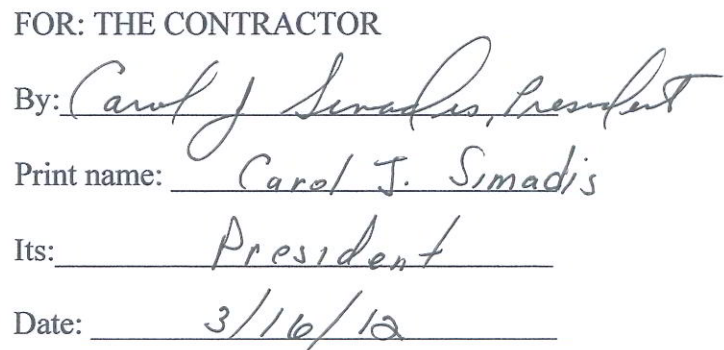 FOR: THE CONTRACTOR
By: Carol J Simadis, President
Print name: Carol J. Simadis
Its: President
Date: 3/16/12